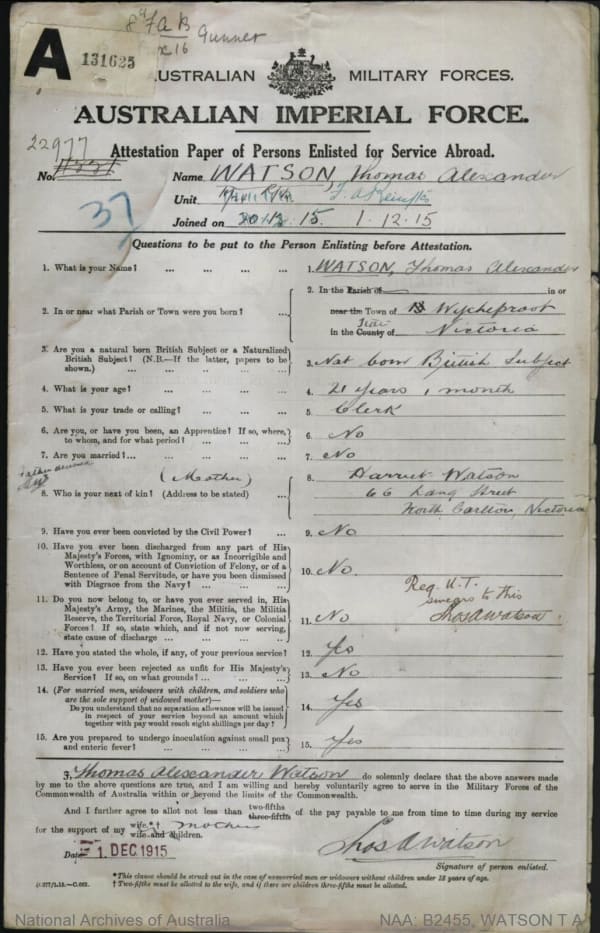 8th F A B
x 16 Gunner
A
131625
AUSTRALIAN MILITARY FORCES.
AUSTRALIAN IMPERIAL FORCE.
22977
Attestation Paper of Persons Enlisted for Service Abroad.
No. Name WATSON, Thomas Alexander
Unit F.A. Reinfts
37
Joined on 15. 1.12.15
Questions to be put to the Person Enlisting before Attestation.
1. What is your Name? ... ... ... ... 1. WATSON, Thomas Alexander
2. In or near what Parish or Town were you born? ... 2. In the Parish of in or
near the Town of Wycheproof
in the County of State Victoria
3. Are you a natural born British Subject or a Naturalized
British Subject? (N.B.—If the latter, papers to be
shown.) ... ... ... ... 3. Nat born British Subject
4. What is your age? ... ... ... ... 4. 21 years 1 month
5. What is your trade or calling? ... ... ... 5. Clerk
6. Are you, or have you been, an Apprentice? If so, where,
to whom, and for what period? ... ... 6. No
7. Are you married?... ... ... ... 7. No
father deceased
(Mother)
8. Who is your next of kin? (Address to be stated) ... 8. Harriet Watson
66 Lang Street
North Carlton, Victoria
9. Have you ever been convicted by the Civil Power? ... 9. No
10. Have you ever been discharged from any part of His
Majesty's Forces, with Ignominy, or as Incorrigible and
Worthless, or on account of Conviction of Felony, or of a
Sentence of Penal Servitude, or have you been dismissed
with Disgrace from the Navy? ... ... ... 10. No
Reg. U.T.
swears to this
ThosAWatson
11. Do you now belong to, or have you ever served in, His
Majesty's Army, the Marines, the Militia, the Militia
Reserve, the Territorial Force, Royal Navy, or Colonial
Forces? If so, state which, and if not now serving,
state cause of discharge ... ... ... 11. No
12. Have you stated the whole, if any, of your previous service? 12. Yes
13. Have you ever been rejected as unfit for His Majesty's
Service? If so, on what grounds? ... ... 13. No
14. (For married men, widowers with children, and soldiers who
are the sole support of widowed mother)—
Do you understand that no separation allowance will be issued
in respect of your service beyond an amount which
together with pay would reach eight shillings per day? 14. Yes
15. Are you prepared to undergo inoculation against small pox
and enteric fever? ... ... ... ... 15. Yes
I, Thomas Alexander Watson do solemnly declare that the above answers made
by me to the above questions are true, and I am willing and hereby voluntarily agree to serve in the Military Forces of the
Commonwealth of Australia within or beyond the limits of the Commonwealth.
And I further agree to allot not less than two-fifths three-fifths of the pay payable to me from time to time during my service
for the support of my wife.*† wife and children. mother
Date 1 DEC 1915
ThosAWatson
Signature of person enlisted.
*This clause should be struck out in the case of unmarried men or widowers without children under 18 years of age.
† Two-fifths must be allotted to the wife, and if there are children three-fifths must be allotted.
National Archives of Australia NAA: B2455, WATSON T A